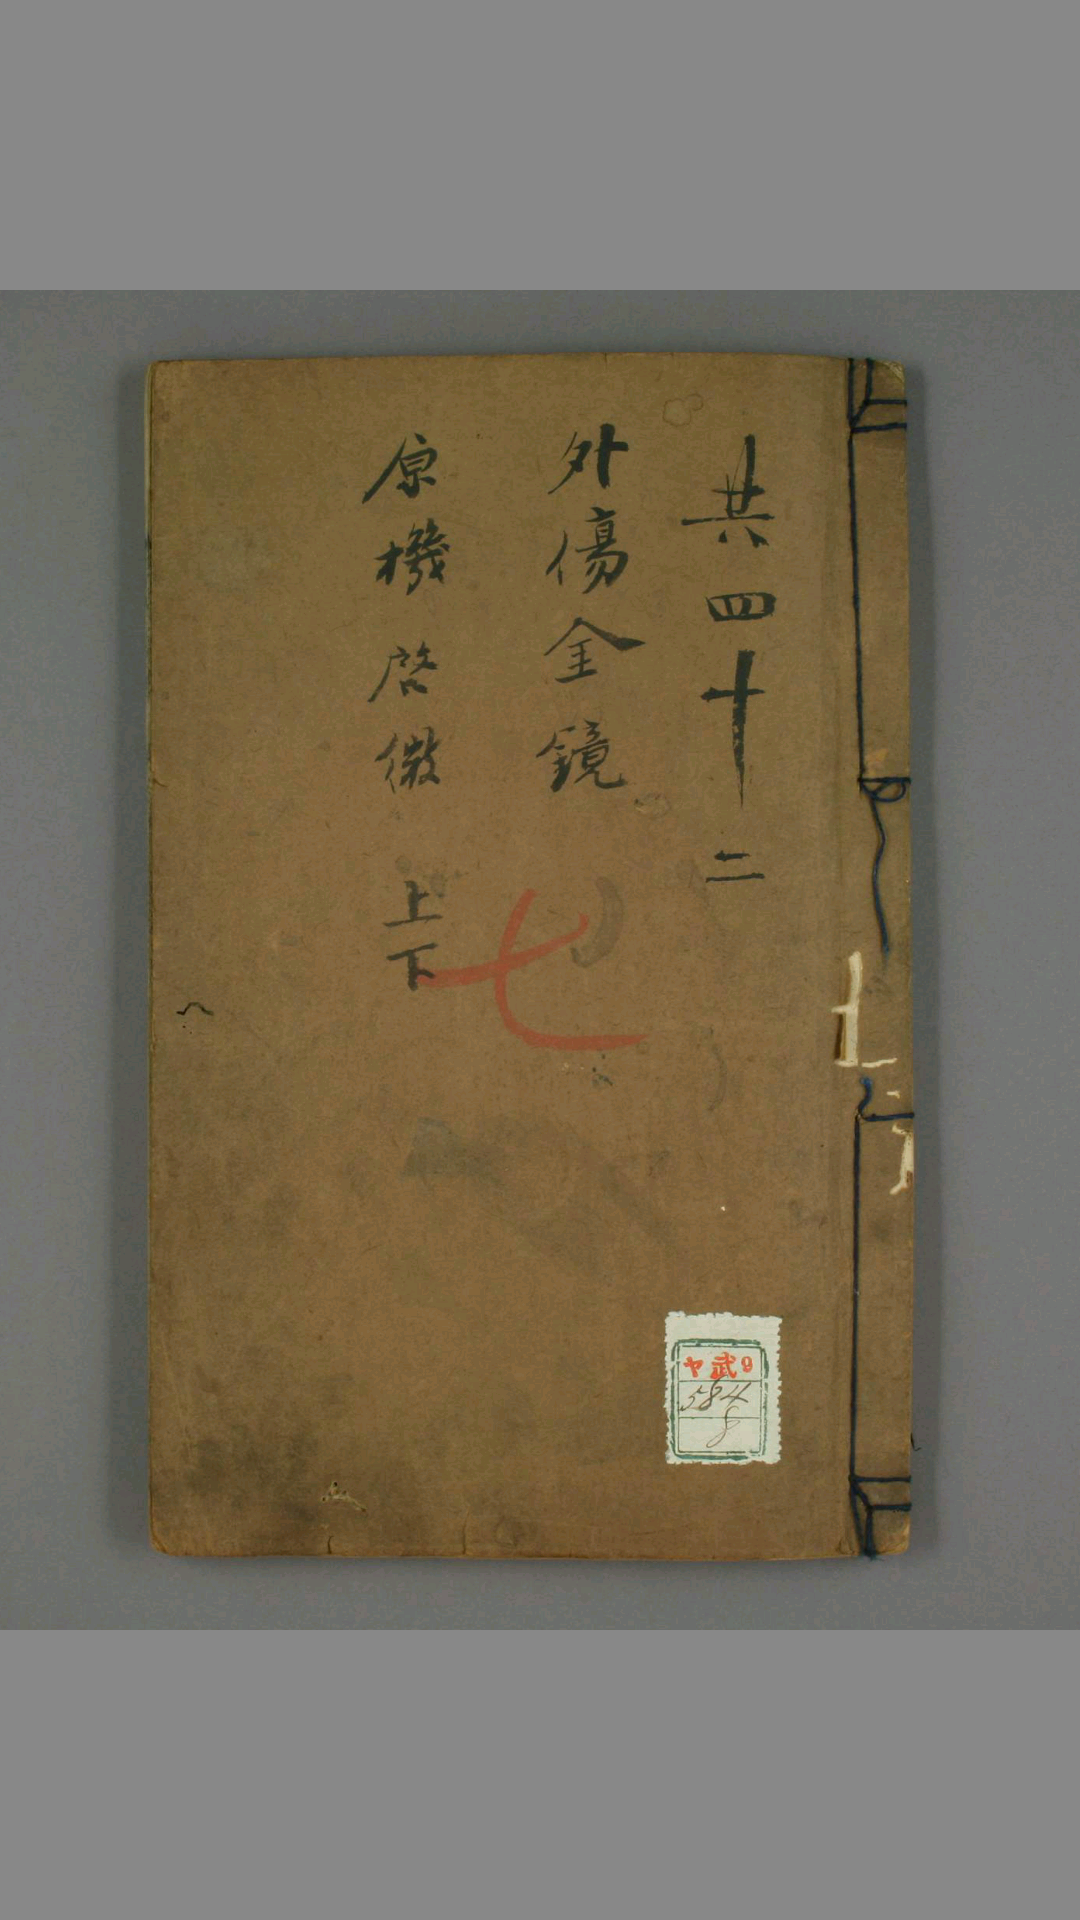 共四十二
外傷金鏡
原機啓微上下
七
ヤ武9
584
8